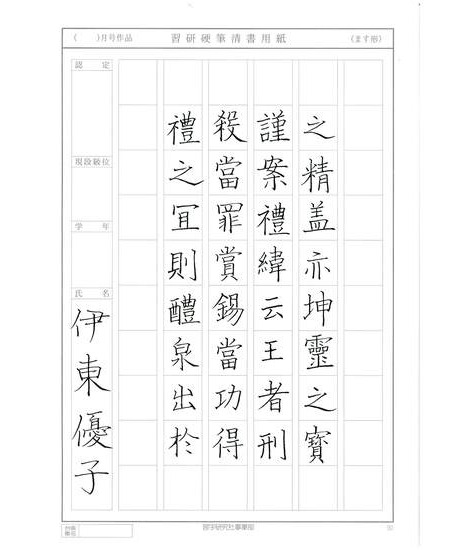 （　）月号作品　習研硬筆清書用紙　（ます形）
之精盖亦坤靈之寳
謹案禮緯云王者刑
殺當罪賞錫當功得
禮之冝則醴泉出於
認定
現段級位
学年
氏名
伊東優子